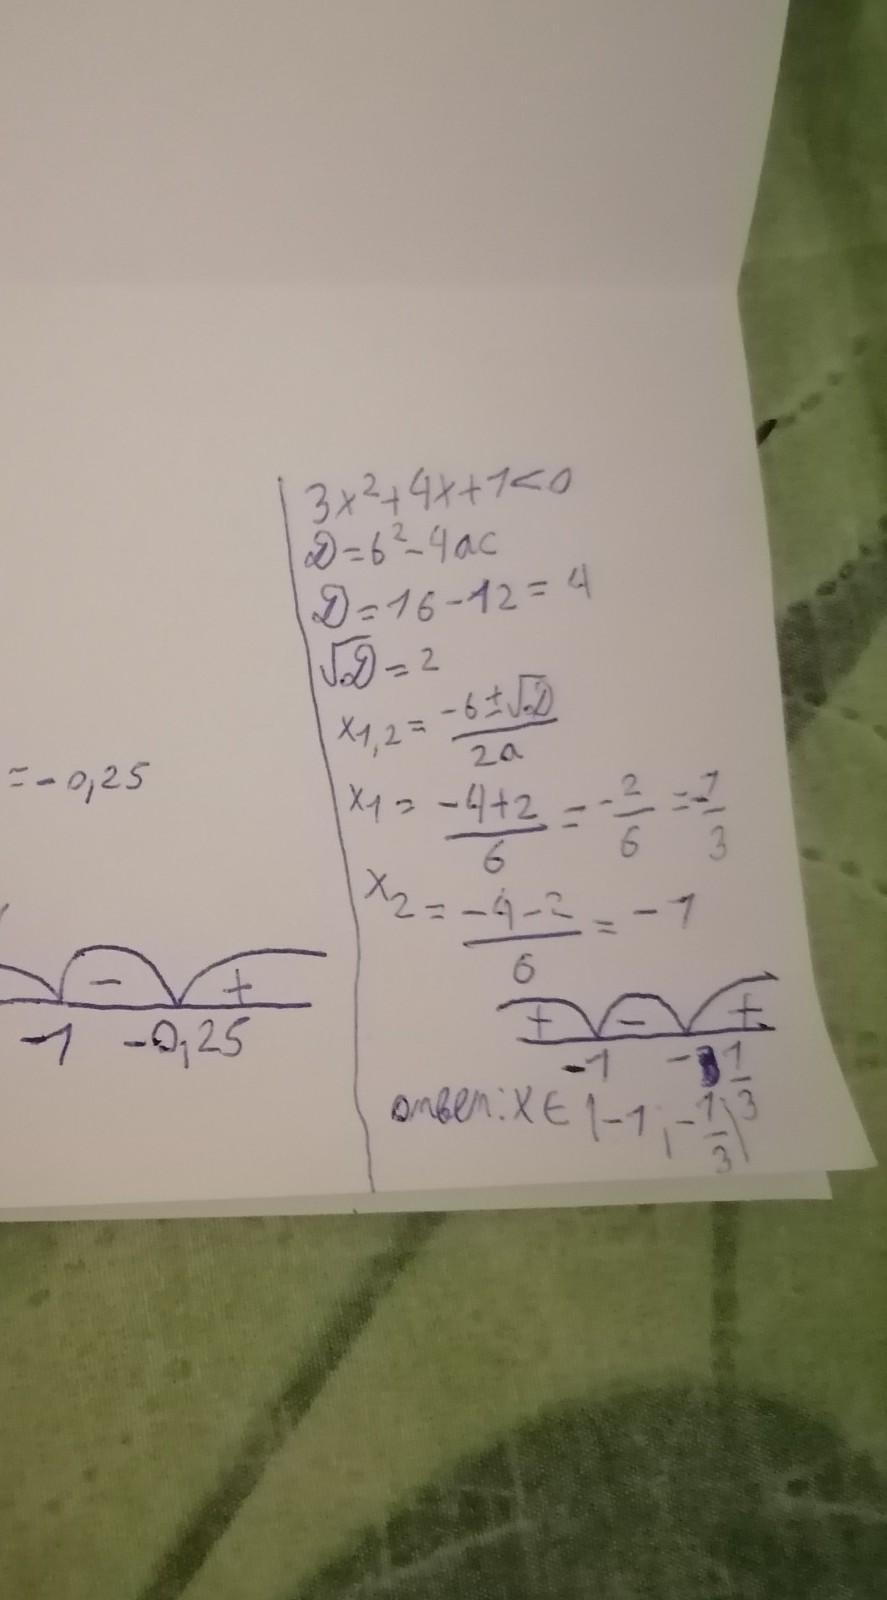 = -0,25
- +
-1 -0,25
3x²+4x+1<0
D=b²-4ac
D=16-12=4
√D=2
x1,2= -b±√D / 2a
x1= -4+2 / 6 = -2/6 = -1/3
x2= -4-2 / 6 = -1
+ - +
-1 -1/3
ответ: x∈(-1;-1/3)